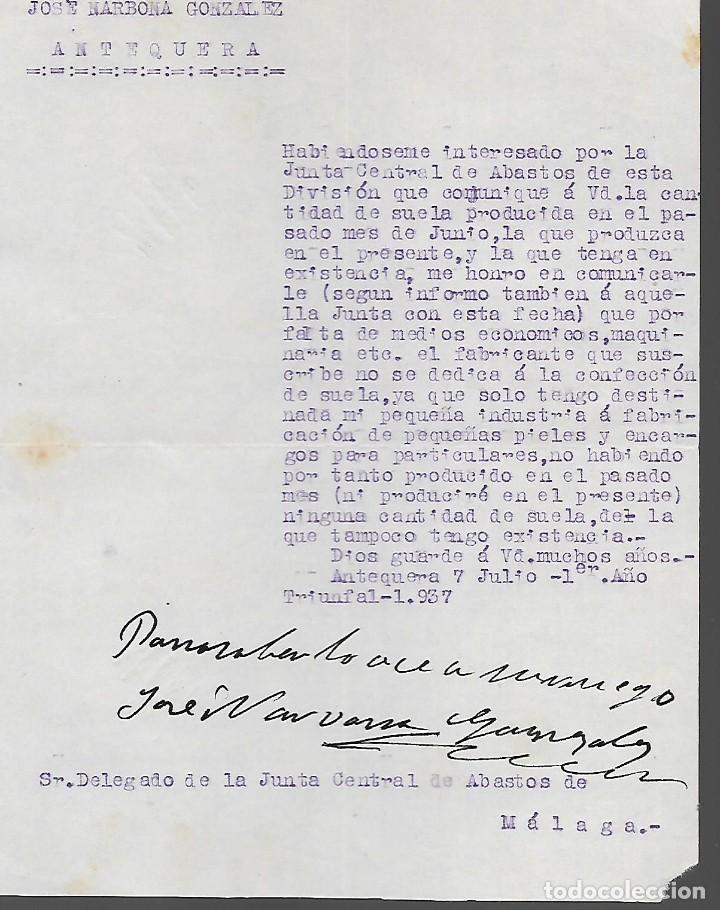 JOSE NARBONA GONZALEZ
A N T E Q U E R A
=:=:=:=:=:=:=:=:=:=:=
Habiendoseme interesado por la
Junta Central de Abastos de esta
División que comunique á Vd.la can-
tidad de suela producida en el pa-
sado mes de Junio,la que produzca
en el presente,y la que tenga en
existencia, me honro en comunicar-
le (segun informo tambien á aque-
lla Junta con esta fecha) que por
falta de medios economicos,maqui-
naria etc. el fabricante que sus-
cribe no se dedica á la confección
de suela,ya que solo tengo desti-
nada mi pequeña industria á fabri-
cación de pequeñas pieles y encar-
gos para particulares,no habiendo
por tanto producido en el pasado
mes (ni produciré en el presente)
ninguna cantidad de suela,de la
que tampoco tengo existencia.-
Dios guarde á Vd.muchos años.-
Antequera 7 Julio -1er.Año
Triunfal-1.937
José Narvona Gonzalez
Sr.Delegado de la Junta Central de Abastos de
M á l a g a.-
todocoleccion